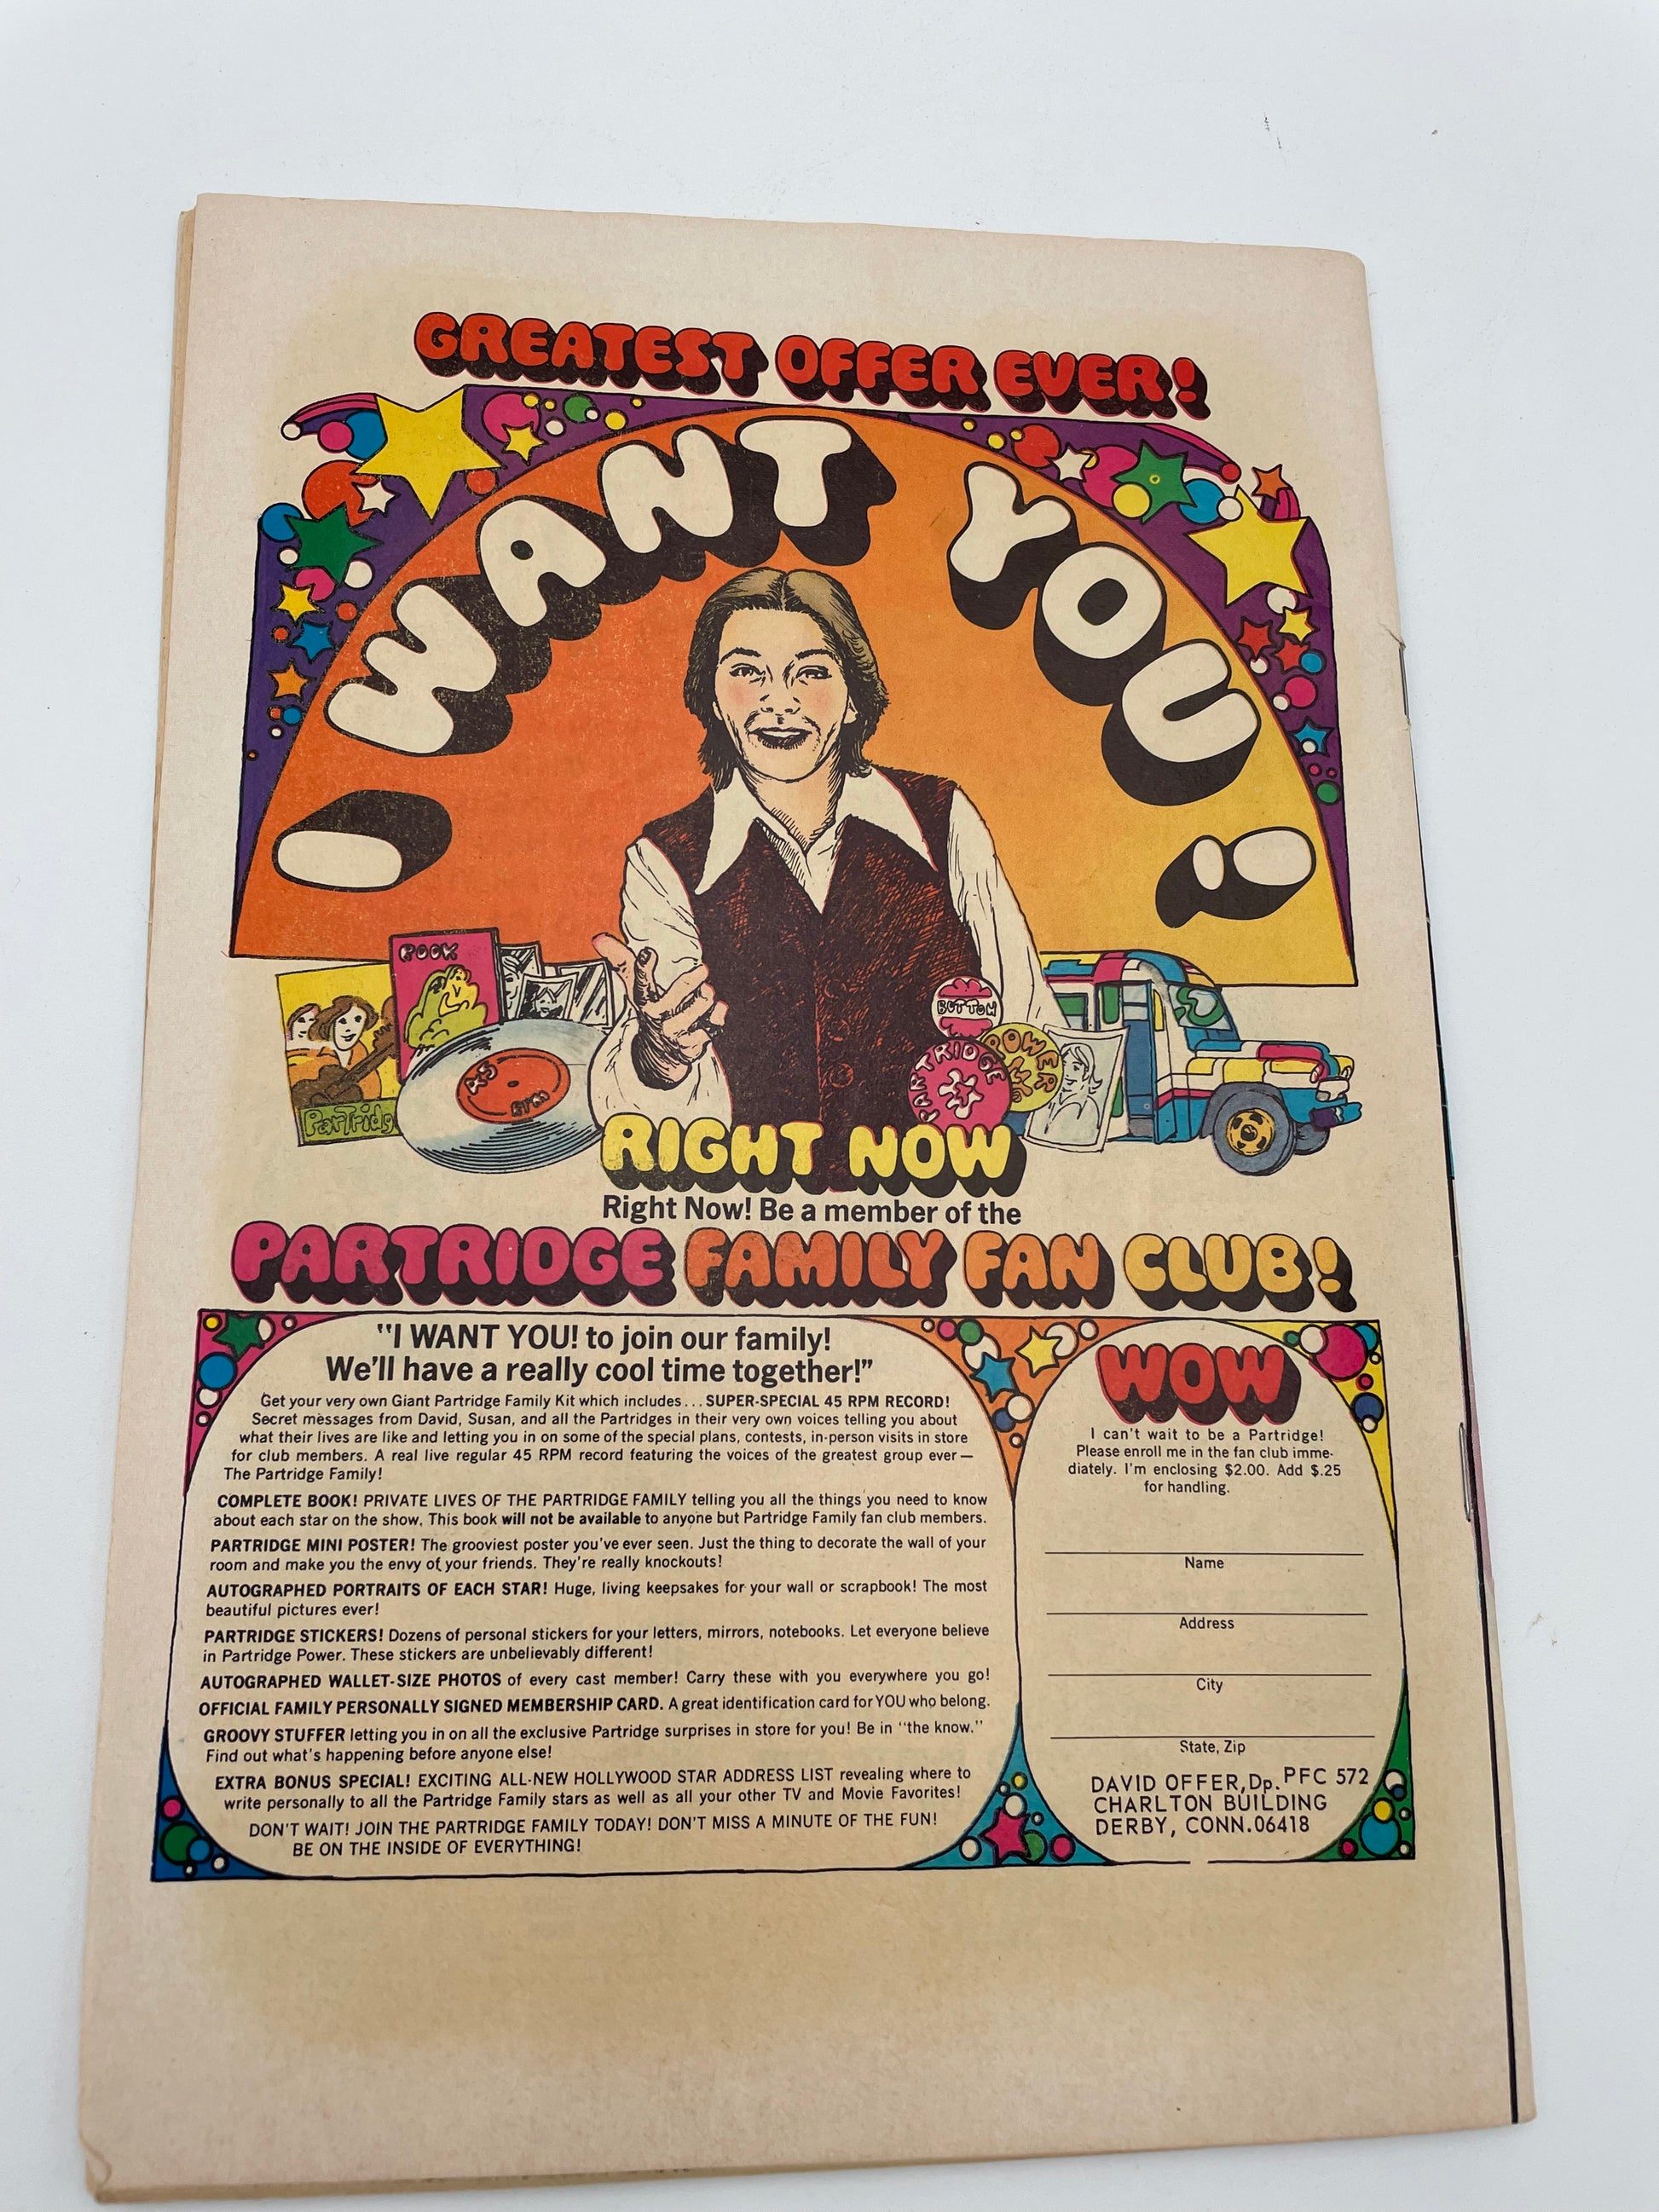 GREATEST OFFER EVER!
I WANT YOU!
BOOK
45
RPM
Partridg
BUTTON
POWER
PARTRIDGE
RIGHT NOW
Right Now! Be a member of the
PARTRIDGE FAMILY FAN CLUB!
"I WANT YOU! to join our family!
We'll have a really cool time together!"
Get your very own Giant Partridge Family Kit which includes... SUPER-SPECIAL 45 RPM RECORD!
Secret messages from David, Susan, and all the Partridges in their very own voices telling you about
what their lives are like and letting you in on some of the special plans, contests, in-person visits in store
for club members. A real live regular 45 RPM record featuring the voices of the greatest group ever—
The Partridge Family!
COMPLETE BOOK! PRIVATE LIVES OF THE PARTRIDGE FAMILY telling you all the things you need to know
about each star on the show. This book will not be available to anyone but Partridge Family fan club members.
PARTRIDGE MINI POSTER! The grooviest poster you've ever seen. Just the thing to decorate the wall of your
room and make you the envy of your friends. They're really knockouts!
AUTOGRAPHED PORTRAITS OF EACH STAR! Huge, living keepsakes for your wall or scrapbook! The most
beautiful pictures ever!
PARTRIDGE STICKERS! Dozens of personal stickers for your letters, mirrors, notebooks. Let everyone believe
in Partridge Power. These stickers are unbelievably different!
AUTOGRAPHED WALLET-SIZE PHOTOS of every cast member! Carry these with you everywhere you go!
OFFICIAL FAMILY PERSONALLY SIGNED MEMBERSHIP CARD. A great identification card for YOU who belong.
GROOVY STUFFER letting you in on all the exclusive Partridge surprises in store for you! Be in "the know."
Find out what's happening before anyone else!
EXTRA BONUS SPECIAL! EXCITING ALL-NEW HOLLYWOOD STAR ADDRESS LIST revealing where to
write personally to all the Partridge Family stars as well as all your other TV and Movie Favorites!
DON'T WAIT! JOIN THE PARTRIDGE FAMILY TODAY! DON'T MISS A MINUTE OF THE FUN!
BE ON THE INSIDE OF EVERYTHING!
WOW
I can't wait to be a Partridge!
Please enroll me in the fan club imme-
diately. I'm enclosing $2.00. Add $.25
for handling.
Name
Address
City
State, Zip
DAVID OFFER, Dp. PFC 572
CHARLTON BUILDING
DERBY, CONN. 06418